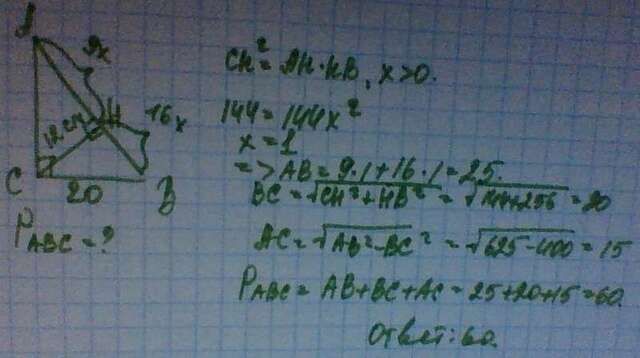 A
9x
12 см
H
16x
C
20
B
P ABC = ?
CH² = AH·HB, x>0.
144 = 144x²
x = 1
=> AB = 9·1+16·1 = 25.
BC = √CH²+HB² = √144+256 = 20
AC = √AB²-BC² = √625-400 = 15
P ABC = AB+BC+AC = 25+20+15 = 60.
Ответ: 60.